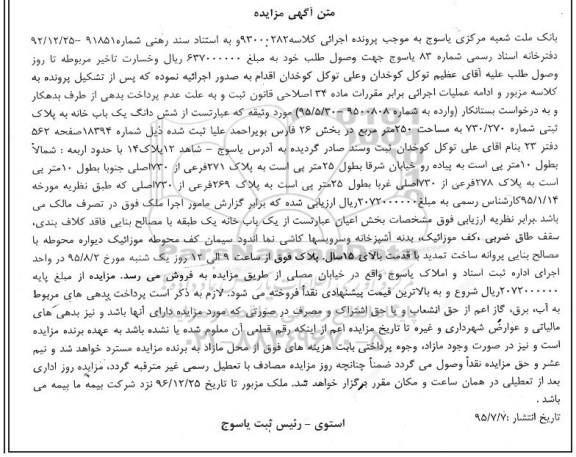 متن آگهی مزایده
بانک ملت شعبه مرکزی یاسوج به موجب پرونده اجرائی کلاسه۹۳۰۰۰۲۸۲و به استناد سند رهنی شماره۹۱۸۵۱ –۹۲/۱۲/۲۵
دفترخانه اسناد رسمی شماره ۸۳ یاسوج جهت وصول طلب خود به مبلغ ۶۳۷۰۰۰۰۰۰ ریال وخسارت تاخیر مربوطه تا روز
وصول طلب علیه آقای عظیم توکل کوخدان وعلی توکل کوخدان اقدام به صدور اجرائیه نموده که پس از تشکیل پرونده به
کلاسه مزبور و ادامه عملیات اجرائی برابر مقررات ماده ۳۴ اصلاحی قانون ثبت و به علت عدم پرداخت بدهی از طرف بدهکار
و به درخواست بستانکار (وارده به شماره ۹۵۰۰۸۰۸-۹۵/۵/۳۰) مورد وثیقه که عبارتست از شش دانگ یک باب خانه به پلاک
ثبتی شماره ۷۳۰/۲۷۰ به مساحت ۲۵۰متر مربع در بخش ۲۶ فارس بویراحمد علیا ثبت شده ذیل شماره ۱۸۳۹۴صفحه ۵۶۲
دفتر ۲۳ بنام آقای علی توکل کوخدان ثبت وسند صادر گردیده به آدرس یاسوج – شاهد ۱۲پلاک۱۴ با حدود اربعه : شمالاً
بطول ۱۰متر پی است به پیاده رو خیابان شرقا بطول ۲۵متر پی است به پلاک ۲۷۱فرعی از ۷۳۰اصلی جنوبا بطول ۱۰متر پی
است به پلاک ۲۷۸فرعی از ۷۳۰اصلی غربا بطول ۲۵متر پی است به پلاک ۲۶۹فرعی از ۷۳۰اصلی که طبق نظریه مورخه
۹۵/۱/۱۴کارشناس رسمی به مبلغ۲۰۷۲۰۰۰۰۰۰ریال ارزیابی شده که برابر گزارش مامور اجرا ملک فوق در تصرف مالک می
باشد .برابر نظریه ارزیابی فوق مشخصات بخش اعیان عبارتست از یک باب خانه یک طبقه با مصالح بنایی فاقد کلاف بندی،
سقف طاق ضربی ،کف موزائیک، بدنه آشپزخانه وسرویسها کاشی نما اندود سیمان کف محوطه موزائیک دیواره محوطه با
مصالح بنایی پروانه ساخت تمدید با قدمت بالای ۱۵سال. پلاک فوق از ساعت ۹ الی ۱۲ روز یک شنبه مورخ ۹۵/۸/۲ در واحد
اجرای اداره ثبت اسناد و املاک یاسوج واقع در خیابان مصلی از طریق مزایده به فروش می رسد. مزایده از مبلغ پایه
۲۰۷۲۰۰۰۰۰۰ریال شروع و به بالاترین قیمت پیشنهادی نقداً فروخته می شود. لازم به ذکر است پرداخت بدهی های مربوط
به آب، برق، گاز اعم از حق انشعاب و یا حق اشتراک و مصرف در صورتی که مورد مزایده دارای آنها باشد و نیز بدهی های
مالیاتی و عوارض شهرداری و غیره تا تاریخ مزایده اعم از اینکه رقم قطعی آن معلوم شده یا نشده باشد به عهده برنده مزایده
است و نیز در صورت وجود مازاد، وجوه پرداختی بابت هزینه های فوق از محل مازاد به برنده مزایده مسترد خواهد شد و نیم
عشر و حق مزایده نقداً وصول می گردد ضمناً چنانچه روز مزایده مصادف با تعطیل رسمی غیر مترقبه گردد، مزایده روز اداری
بعد از تعطیلی در همان ساعت و مکان مقرر برگزار خواهد شد. ملک مزبور تا تاریخ ۹۶/۱۲/۲۵ نزد شرکت بیمه ما بیمه می
باشد .
تاریخ انتشار :۹۵/۷/۷
استوی – رئیس ثبت یاسوج